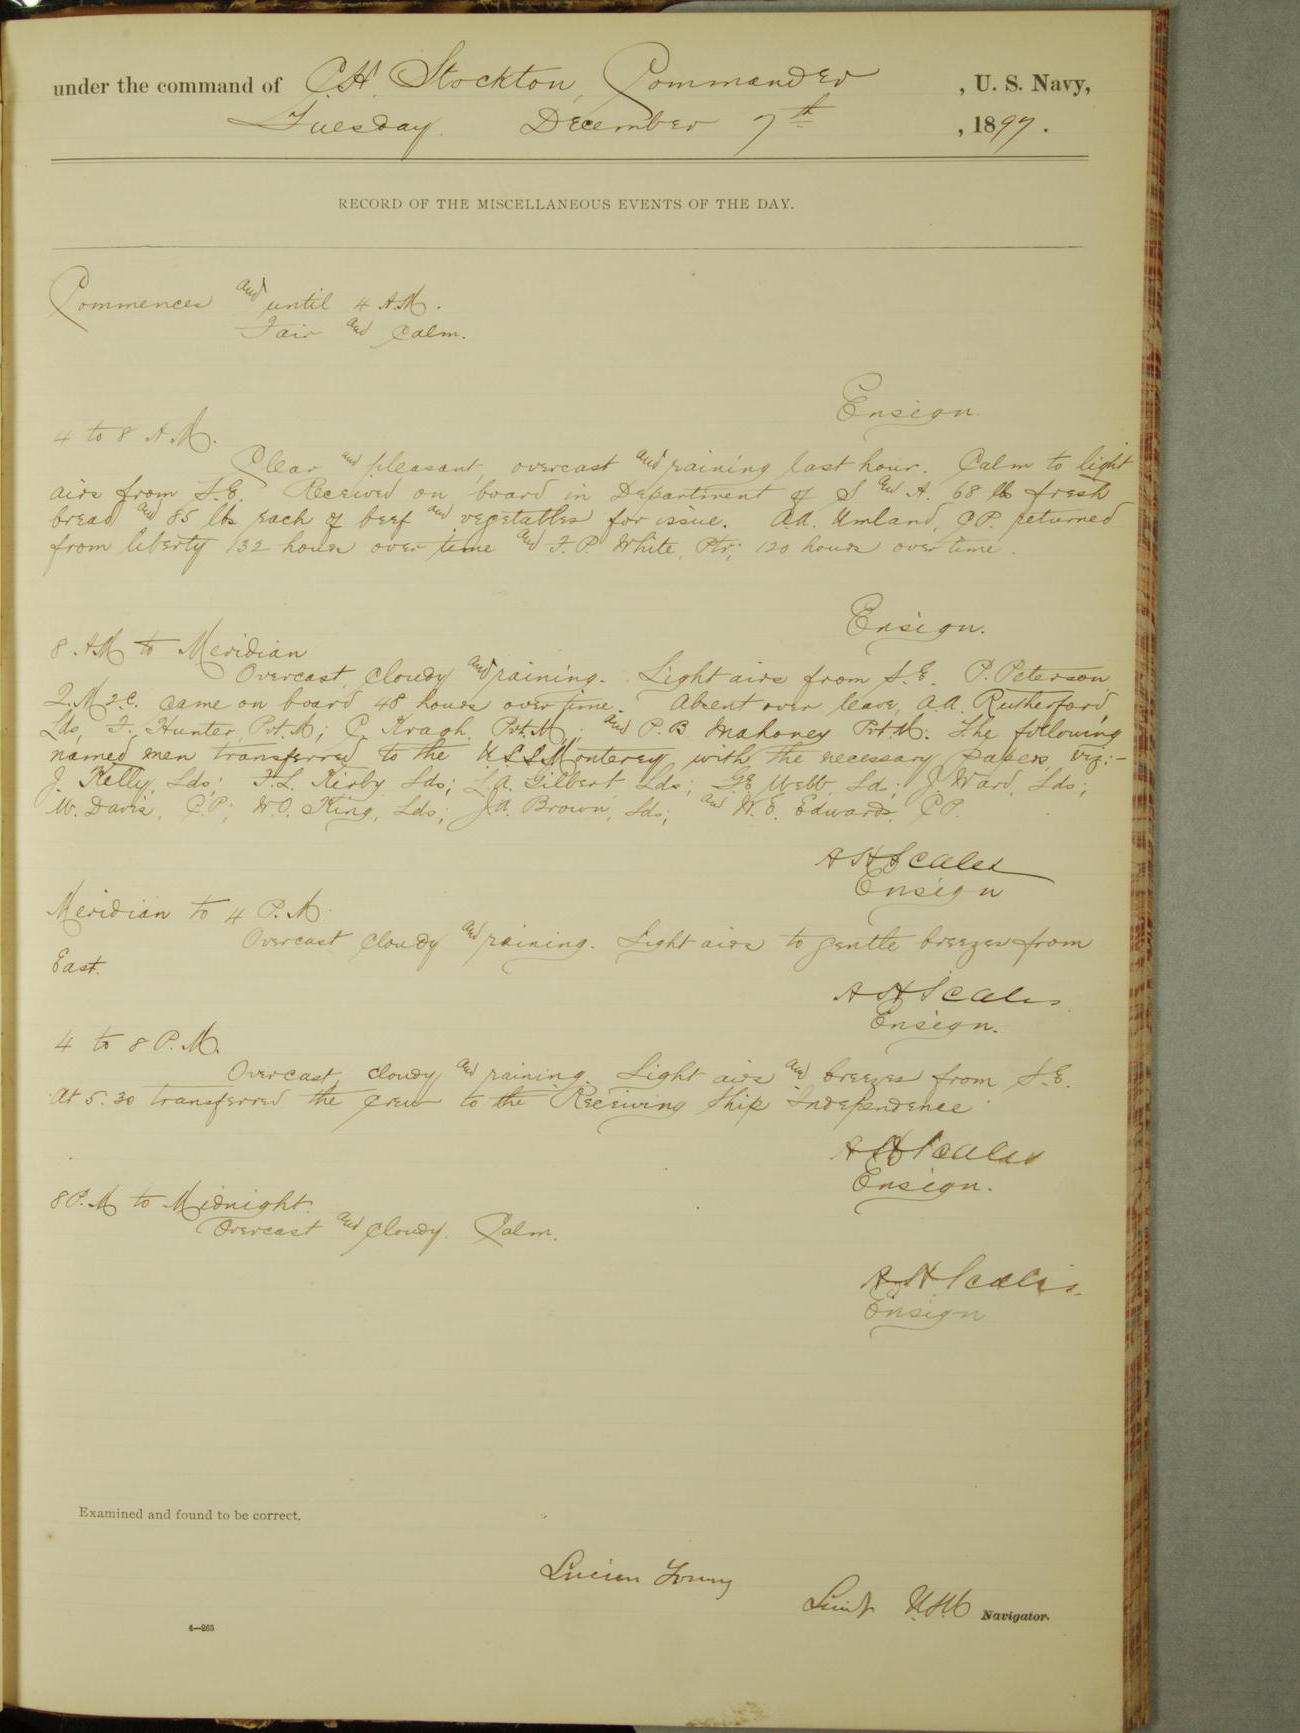 under the command of C.H. Stockton, Commander, U. S. Navy,
Tuesday. December 7th, 1897.
RECORD OF THE MISCELLANEOUS EVENTS OF THE DAY.
Commences and until 4 A.M.
Fair and Calm.
Ensign
4 to 8 A.M.
Clear and pleasant, overcast and raining last hour. Calm to light
airs from S.E. Received on board in Department of S and A. 68 lbs fresh
bread and 85 lbs each of beef and vegetables for issue. A.A. Umland, C.P. returned
from liberty 132 hours over time and F. P. White, Ptr; 120 hours over time.
Ensign.
8 A.M to Meridian
Overcast, cloudy and raining. Light airs from S.E. P. Peterson
Q.M 2.c. came on board 48 hours over time. Absent over leave, A.A. Rutherford,
Lds, F. Hunter, Pvt. M; C. Kragh, Pvt. M; and P. B Mahoney Pvt. M. The following
named men transferred to the U.S.S. Monterey with the necessary papers, viz:-
J. Kelly, Lds; F.L. Kirby Lds; L.A. Gilbert Lds; G.E. Webb, Ld; J. Ward, Lds;
W. Davis, C.P; W.O. King, Lds; J.A. Brown, Lds; and W.E. Edwards, C.P.
A H Scales
Ensign
Meridian to 4 P.M
Overcast cloudy and raining. Light airs to gentle breezes from
East.
A H Scales
Ensign.
4 to 8 P.M.
Overcast, cloudy and raining. Light airs and breezes from S.E.
At 5.30 transferred the crew to the Receiving Ship Independence
A H Scales
Ensign.
8 P.M to Midnight.
Overcast and cloudy. Calm.
A H Scales.
Ensign
Examined and found to be correct.
Lucien Young
Lieut U.S.N Navigator.
4—265